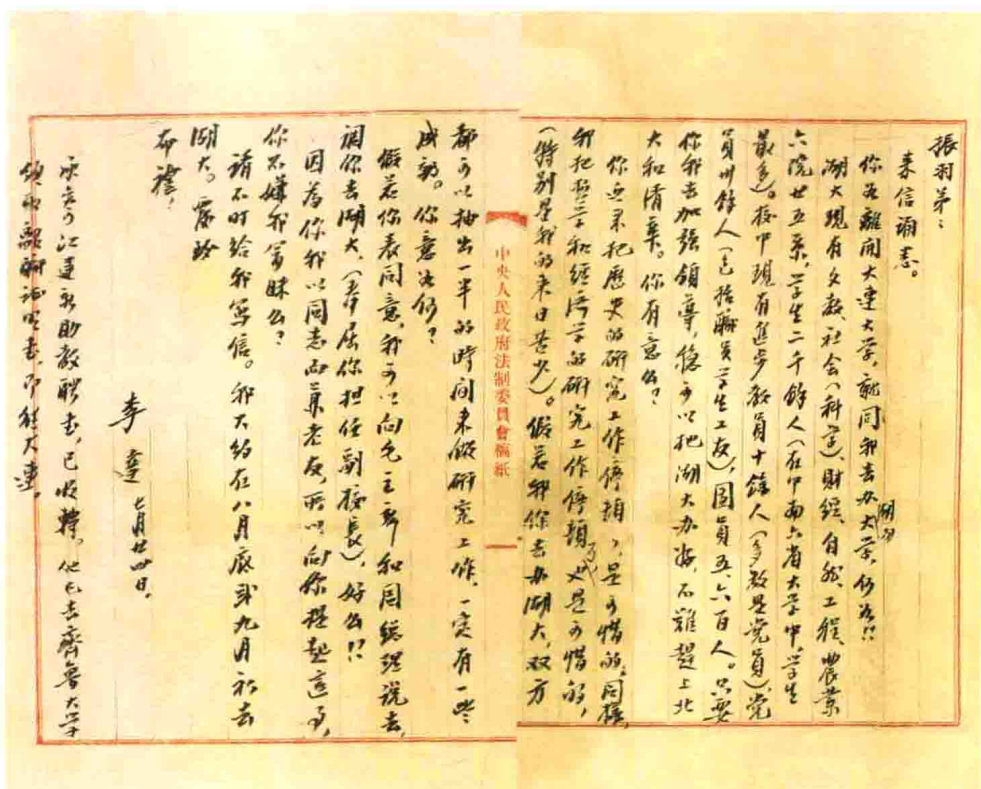 振羽弟：
来信诵悉。
你若離開大連大学，就同我去办湖南大学，何如！！
湖大現有文教、社会（科学）、財經、自然、工程、農業
六院廿五系，学生二千餘人（在中南六省大学中，学生
最多）。校中現有進步教員十餘人（多数是党員），党
員卅餘人（包括職員学生工友），團員五、六百人。只要
你我去加強領導，稳可以把湖大办好，不難趕上北
大和清華。你有意么？
你近来把歷史的研究工作停頓了，是可惜的。同樣，
我把哲学和經济学的研究工作停頓了，也是可惜的，
（特別是我的来日苦少）。假若我你去办湖大，双方
都可以抽出一半的時间来做研究工作，一定有一些
成就。你意如何？
假若你表同意，我可以向毛主席和周總理说去，
调你去湖大，（委屈你担任副校長），好么！！
因為你我以同志而兼老友，所以向你提起這事，
你不嫌我冒昧么？
請不时给我写信。我大約在八月底或九月初去
湖大。露敬
布禮！
李達 七月廿四日。
江連永助教聘书，已收轉。他已去齊魯大学
領取離職证明书，即往大連。
中央人民政府法制委員會稿紙